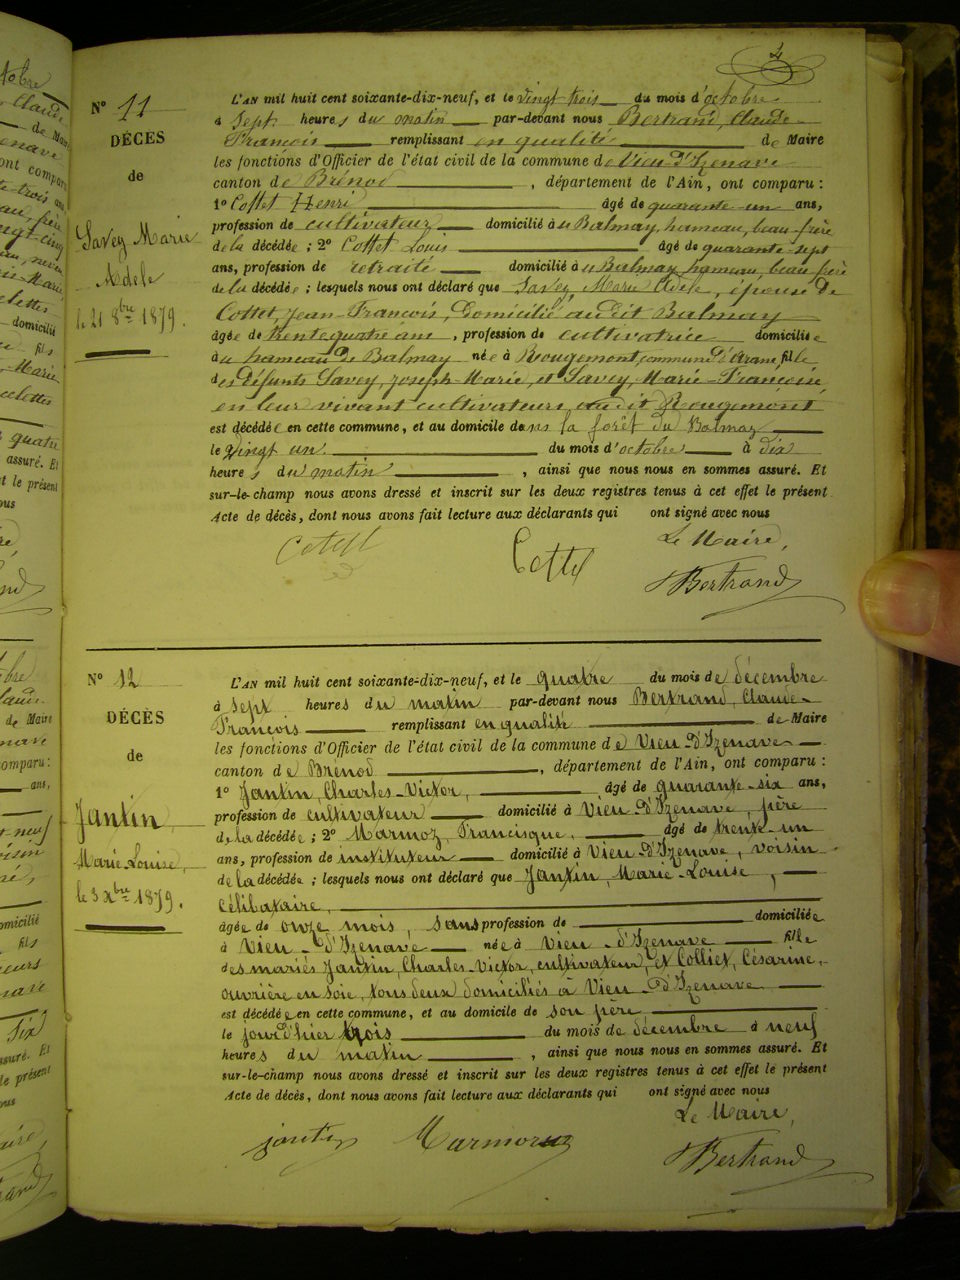 4
N° 11
DÉCÈS
de
Savey Marie
Adele
le 21 8bre 1879.
L'AN mil huit cent soixante-dix-neuf, et le vingt trois du mois d'octobre
à Sept heures du matin par-devant nous Bertrand, Claude-
François remplissant en qualité de Maire
les fonctions d'Officier de l'état civil de la commune de Vieu-d'Izenave
canton de Brénod , département de l'Ain, ont comparu :
1° Cottet Henri âgé de quarante-un ans,
profession de cultivateur domicilié au Balmay, hameau, beau-frère
de la décédée ; 2° Cottet Louis âgé de quarante-sept
ans, profession de retraité domicilié au Balmay, hameau, beau frère
de la décédée ; lesquels nous ont déclaré que Savey, Marie Adele, épouse de
Cottet, Jean-François, Domicilié audit Balmay
âgée de trente quatre ans , profession de cultivatrice domiciliée
à au hameau de Balmay née à Rougemont, commune d'Aranc, fille
des défunts Savey, Joseph-Marie, et Savey, Marie-Françoise,
en leur vivant cultivateurs audit Rougemont
est décédée en cette commune, et au domicile dans la forêt du Balmay
le vingt un du mois d'octobre à dix
heures du matin , ainsi que nous nous en sommes assuré. Et
sur-le-champ nous avons dressé et inscrit sur les deux registres tenus à cet effet le présent
Acte de décès, dont nous avons fait lecture aux déclarants qui ont signé avec nous
Le Maire,
Cottet
Cottet
Bertrand
N° 12
DÉCÈS
de
Jantin,
Marie-Louise,
le 3 Xbre 1879.
L'AN mil huit cent soixante-dix-neuf, et le quatre du mois de décembre
à sept heures du matin par-devant nous Bertrand, Claude-
François remplissant en qualité de Maire
les fonctions d'Officier de l'état civil de la commune de Vieu-d'Izenave
canton de Brenod , département de l'Ain, ont comparu :
1° Jantin, Charles-Victor, âgé de quarante-six ans,
profession de cultivateur domicilié à Vieu-d'Izenave, père
de la décédée ; 2° Marmoz, Francisque, âgé de trente-un
ans, profession de instituteur domicilié à Vieu-d'Izenave, voisin
de la décédée ; lesquels nous ont déclaré que Jantin, Marie-Louise,
Célibataire,
âgée de onze mois, sans profession de domiciliée
à Vieu-d'Izenave née à Vieu-d'Izenave fille
des mariés Jantin, Charles-Victor, cultivateur, et Colliet, Césarine,
ouvrière en soie, tous deux domiciliés à Vieu-d'Izenave
est décédée en cette commune, et au domicile de son père
le jour d'hier trois du mois de décembre à neuf
heures du matin , ainsi que nous nous en sommes assuré. Et
sur-le-champ nous avons dressé et inscrit sur les deux registres tenus à cet effet le présent
Acte de décès, dont nous avons fait lecture aux déclarants qui ont signé avec nous
Le Maire,
jantin
Marmoz
Bertrand